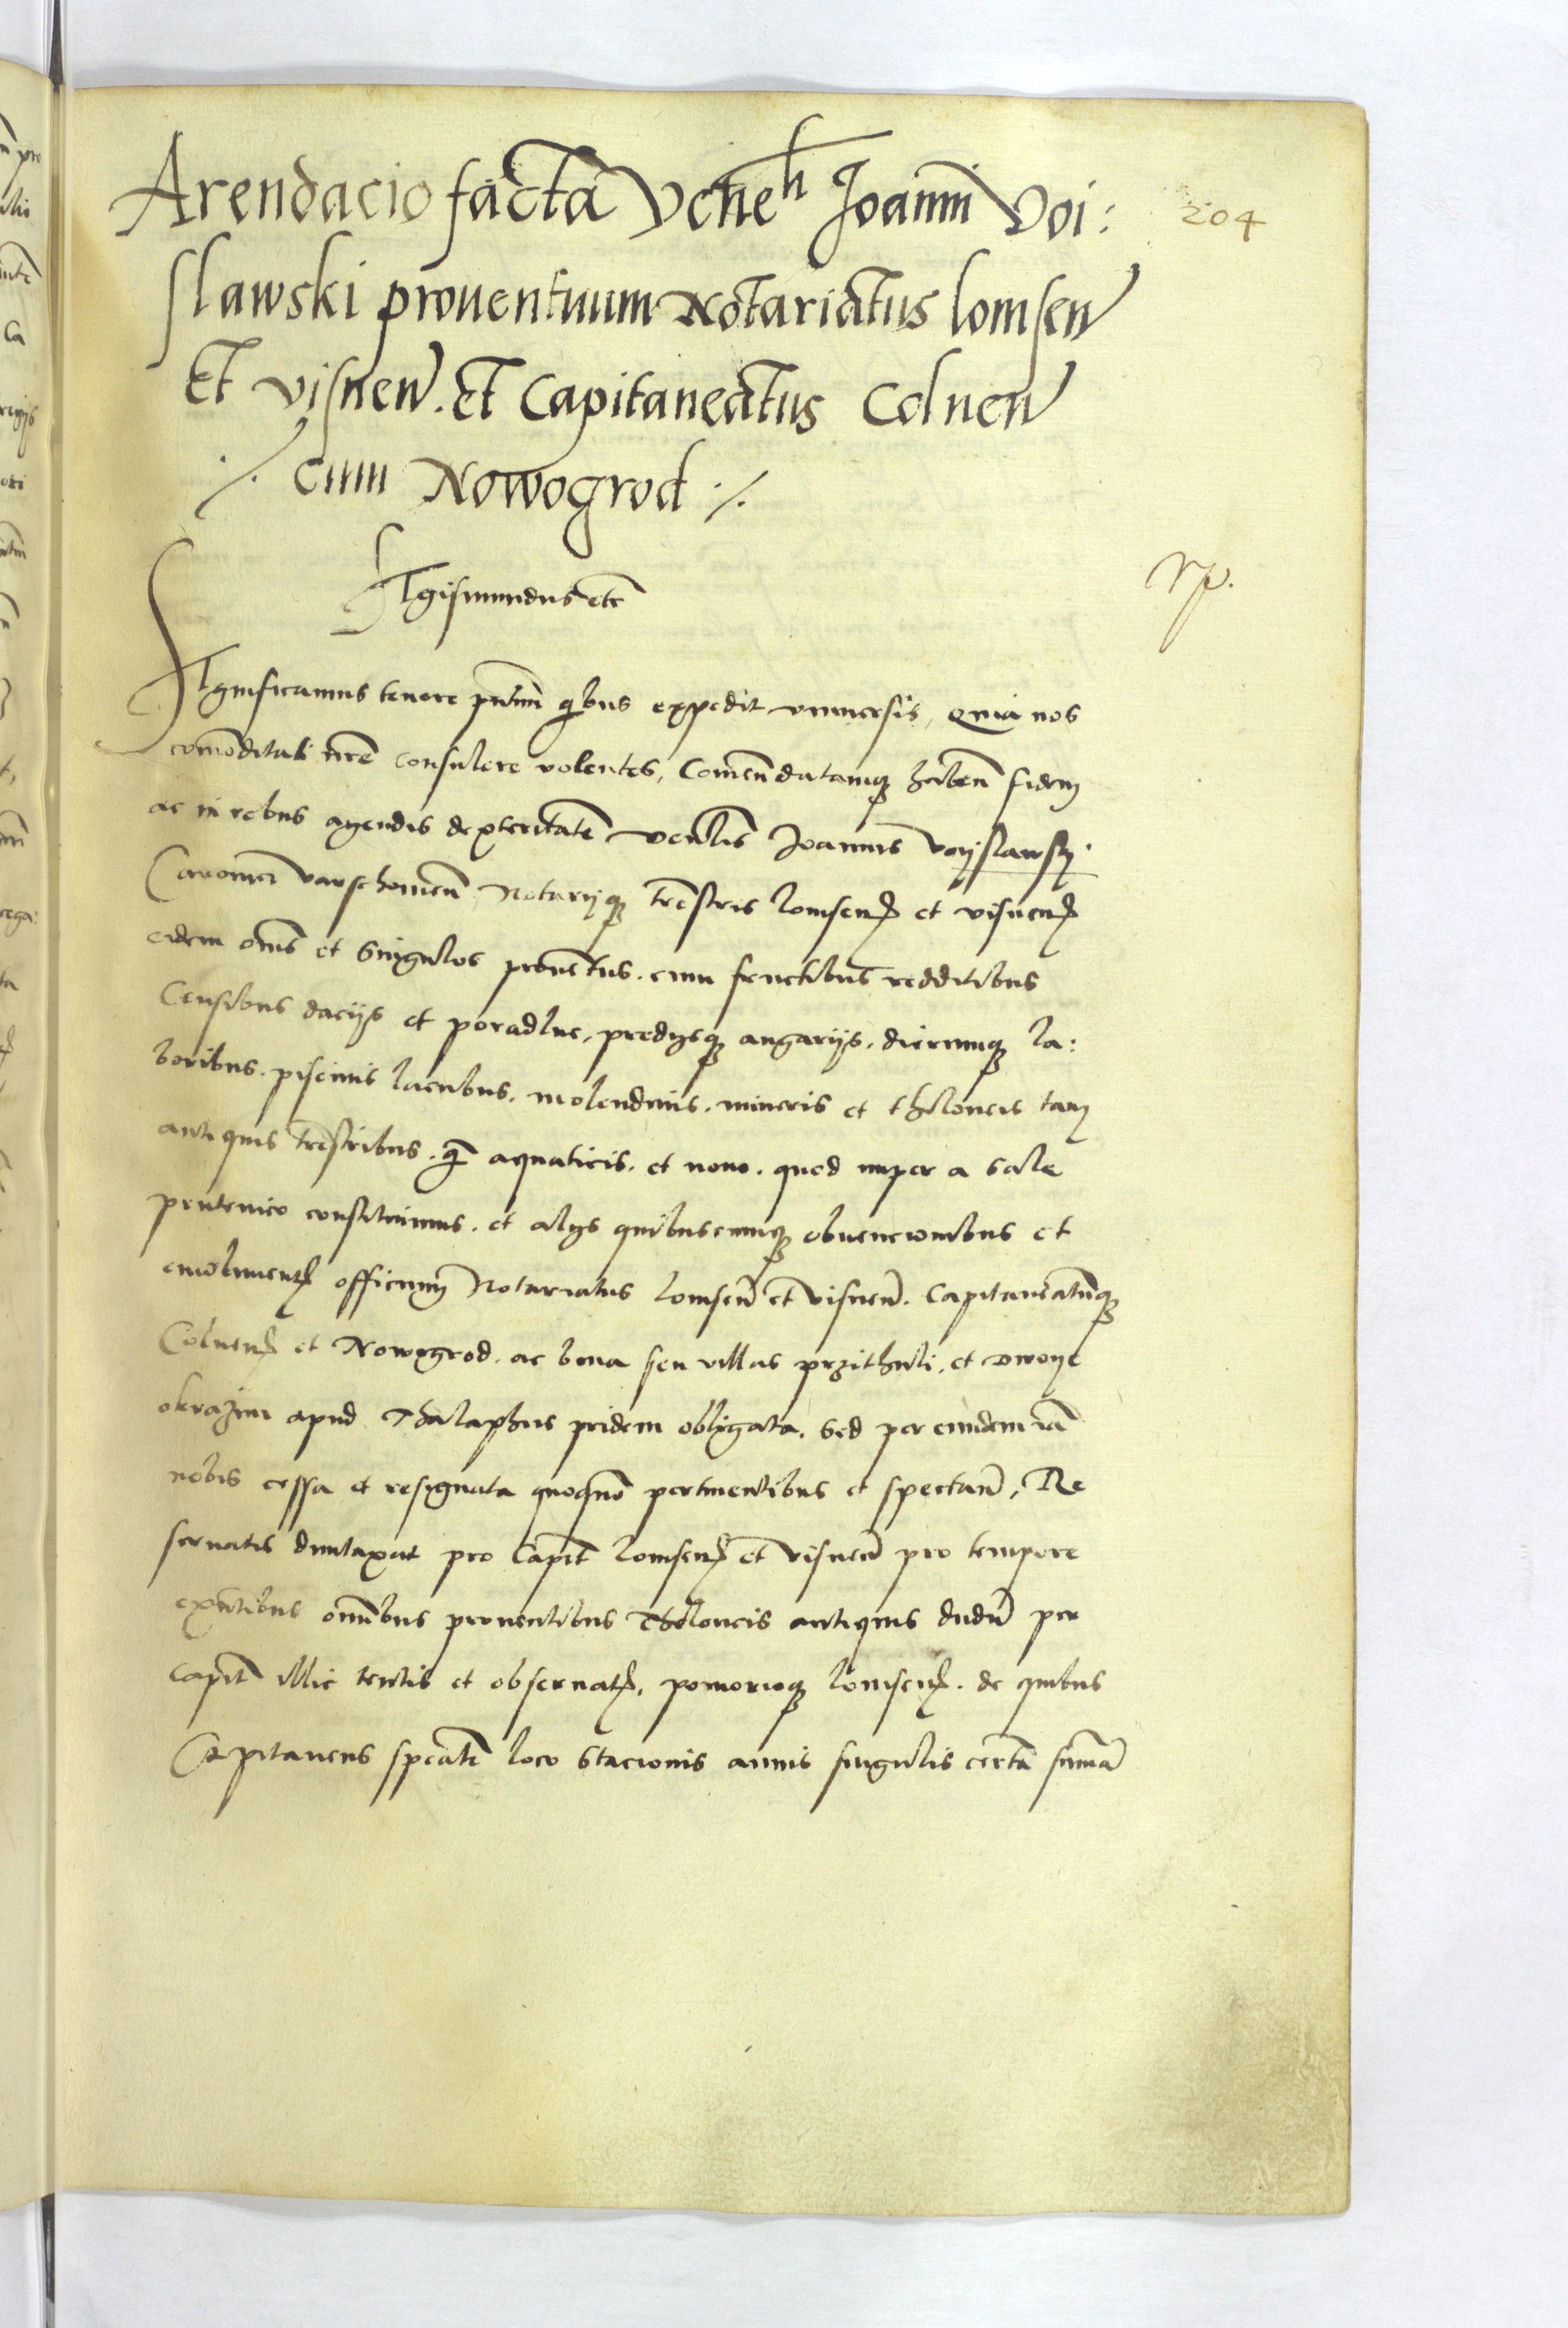 Arendacio facta Veneh Joanni Voi:
204
slawski proventuum Notariatus lomsen
Et visnen. Et Capitaneatus Colnen
./. cum Nowogrod ./.
Sigismundus etc
Significamus tenore pntium qbus expedit universis, Quia nos
comoditati nre consulere volentes, Comendatamq haben fidem
ac in rebus agendis dexteritate venlis Joannis Voyslawsky
Canonici varschovien Notarijq trestris lomsen et visnen
eidem oms et singulos proventus. cum fructibus redditibus
Censibus dacijs et poradlne, predijsq angarijs, dierumq la:
boribus. piscinis lacubus. molendinis. mineris et theloneis tam
antiquis trestribus. q aquaticis. et novo. quod nuper a sale
prutenico constituimus. et alijs quibuscumq obvencionibus et
emolument officium Notariatus lomsen et visnen. Capitaneatuq
Colnen et Nowogrod. ac bona seu villas przithuli. et dwoye
okrazim apud Thalaphus pridem obligata. sed per eundem ia
nobis cessa et resignata quoquo pertinentibus et spectan, Re
servatis duntaxat pro Capit lomsen et visnen pro tempore
exntibus omnibus proventibus Theloneis antiquis dudu per
Capit illic tentis et observat, pomerioq lomsen. de quibus
Capitaneus loco stacionis annis singulis certa suma